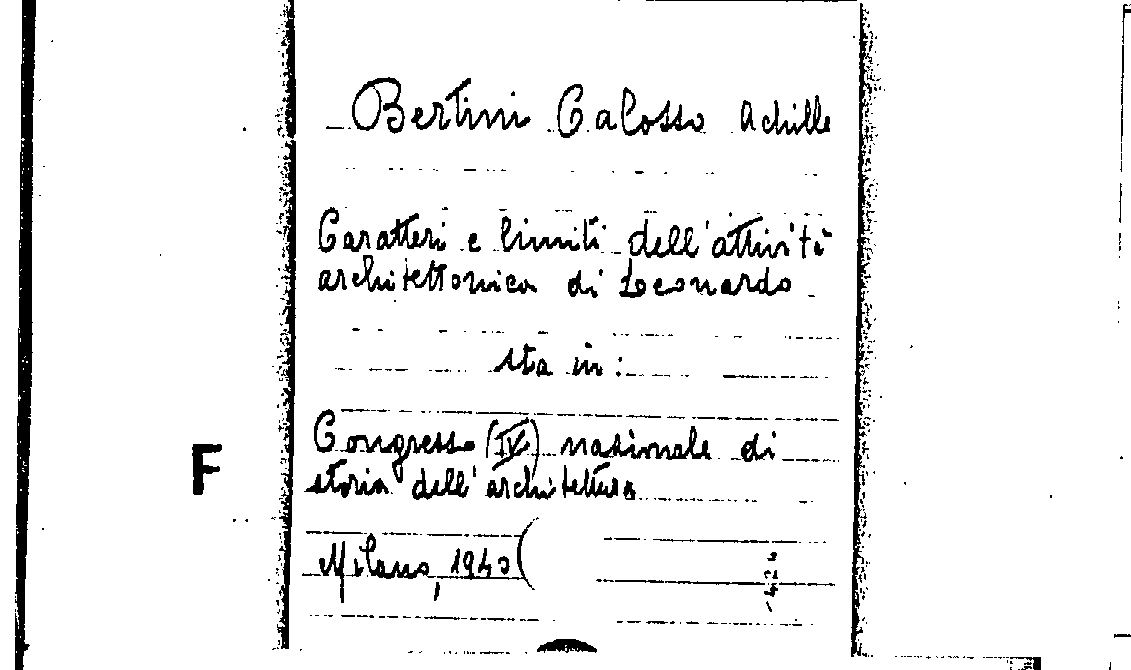 Bertini Calosso Achille
Caratteri e limiti dell'attività
architettonica di Leonardo
sta in:
Congresso (IV) nazionale di
F
storia dell'architettura
Milano, 1940 (